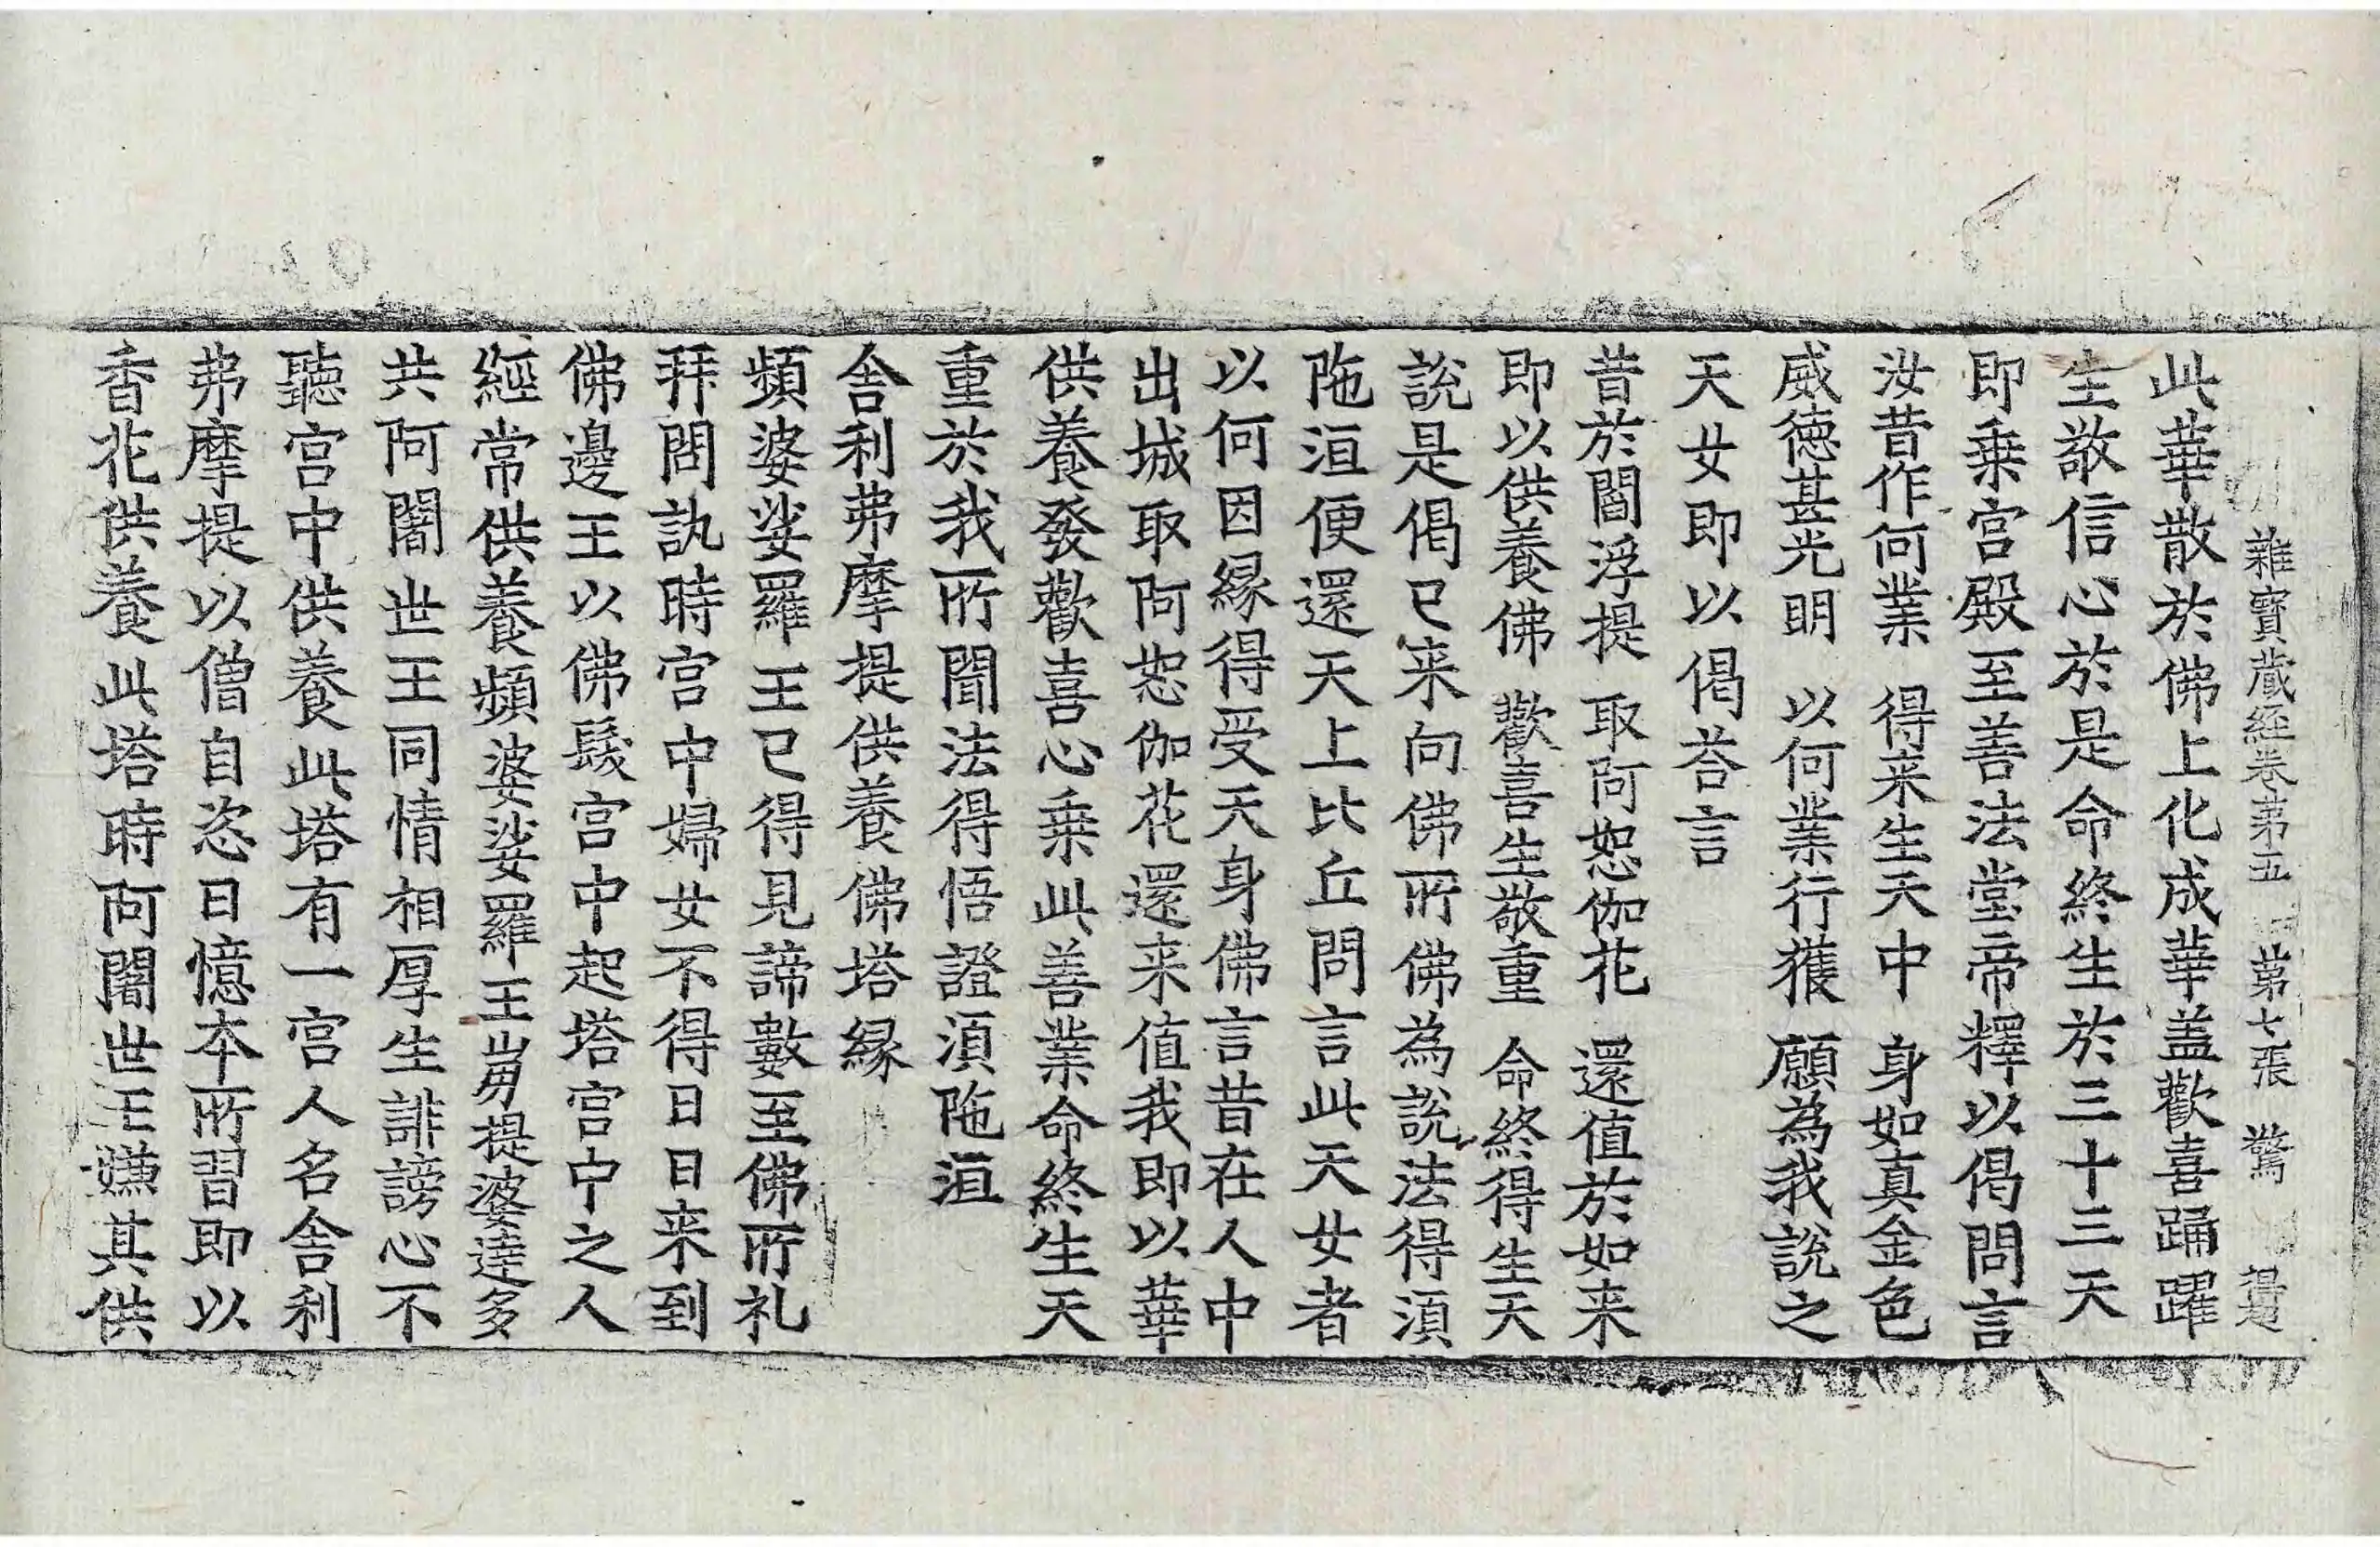 雜寶蔵經卷第五 第七張 驚
此華散於佛上化成華盖歡喜踊躍
生敬信心於是命終生於三十三天
即乗宫殿至善法堂帝釋以偈問言
汝昔作何業 得来生天中 身如真金色
威徳甚光明 以何業行獲 願為我說之
天女即以偈荅言
昔於閻浮提 取阿恕伽花 還值於如来
即以供養佛 歡喜生敬重 命終得生天
說是偈已来向佛所佛為說法得湏
陁洹便還天上比丘問言此天女者
以何因縁得受天身佛言昔在人中
出城取阿恕伽花還来值我即以華
供養發歡喜心乗此善業命終生天
重於我所聞法得悟證湏陁洹
舎利弗摩提供養佛塔縁
頻婆娑羅王已得見諦數至佛所礼
拜問訊時宫中婦女不得日日来到
佛邊王以佛髮宫中起塔宫中之人
經常供養頻婆娑羅王崩提婆達多
共阿闍世王同情相厚生誹謗心不
聽宫中供養此塔有一宫人名舎利
弗摩提以僧自恣日憶本所習即以
香花供養此塔時阿闍世王嫌其供